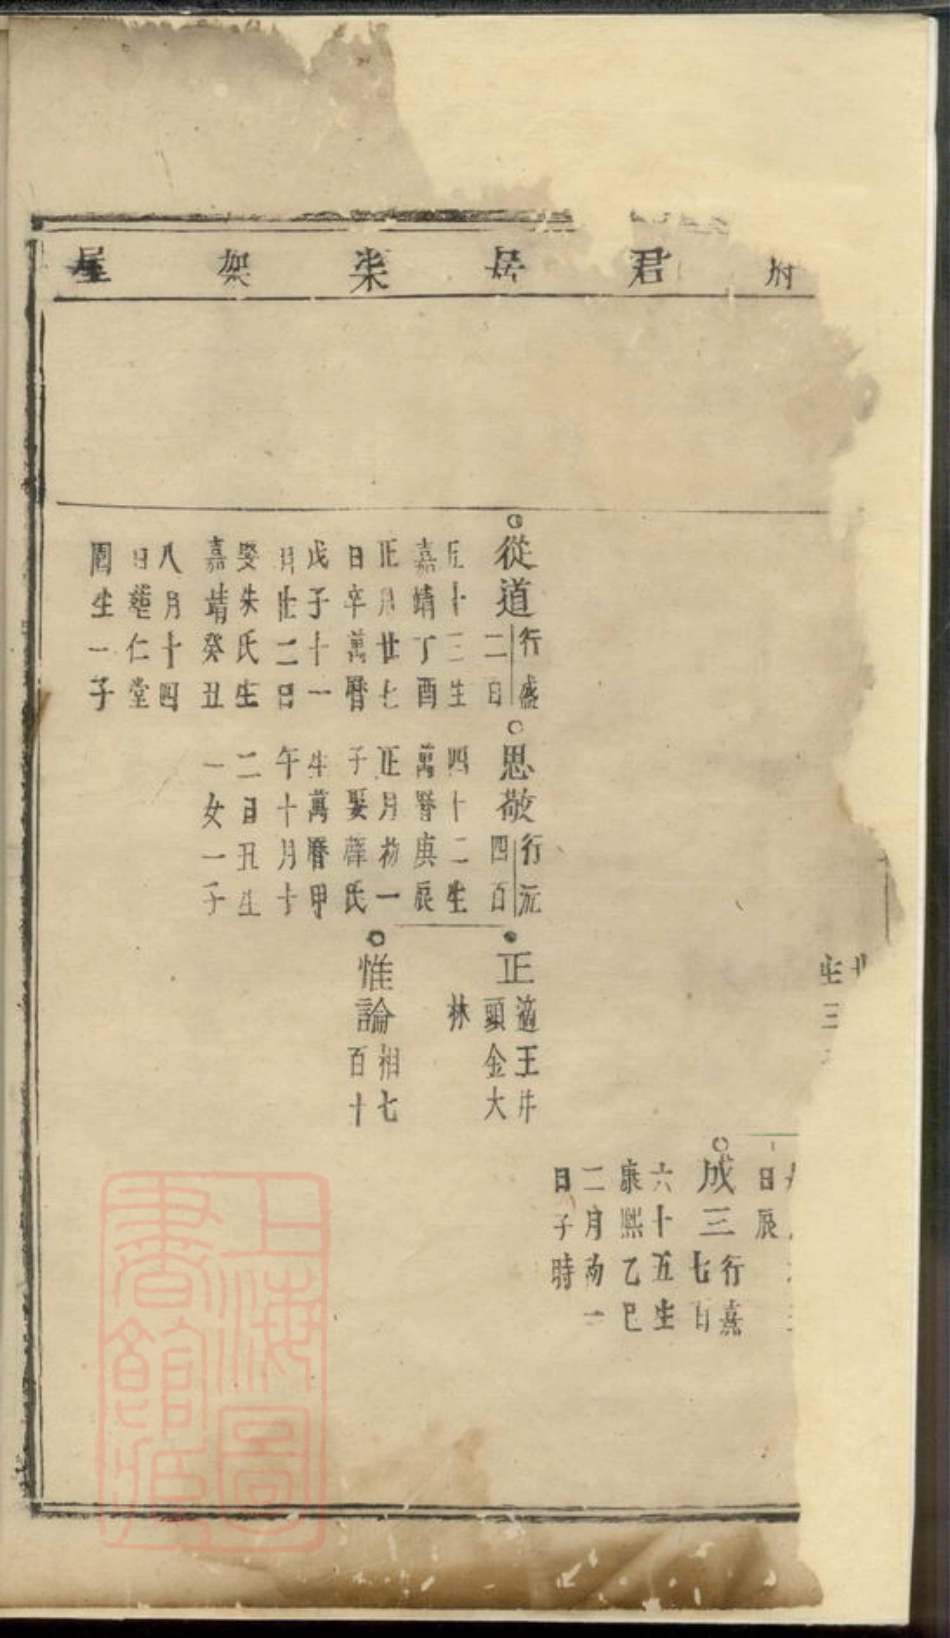 府君居柒架屋
從道
行盛
二百
五十三生
嘉靖丁酉
正月廿七
日卒萬曆
戊子十一
月廿二日
娶朱氏生
嘉靖癸丑
八月十四
日葬仁堂
園生一子
思敬
行沅
四百
四十二生
萬曆庚辰
正月初一
子娶薛氏
生萬曆甲
午十月十
二日丑生
一女一子
正
適王井
頭金大
林
惟論
相七
百十
生三
日辰
成三
行嘉
七百
六十五生
康熙乙巳
二月南一
日子時
上海圖
書館藏